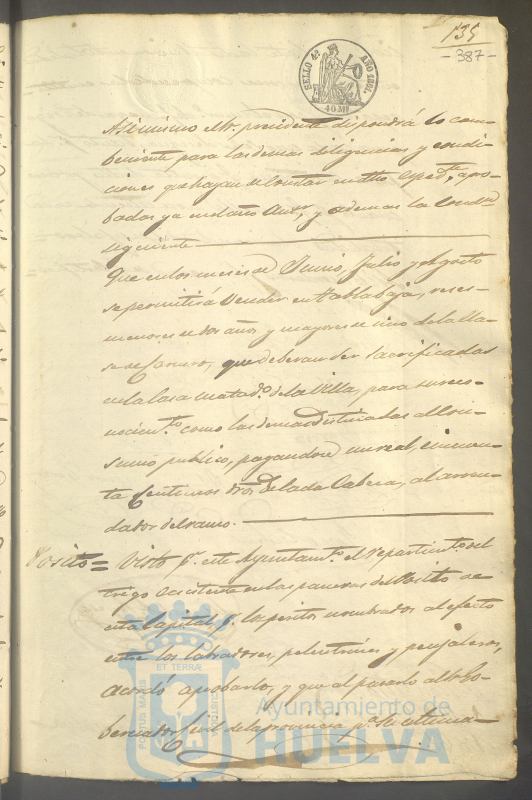 135
-387-
SELLO 4º AÑO 1861.
40 Ms
Asimismo el Sr. presidente dispondrá lo com-
beniente para las demas diligencias y condi-
ciones que hayan de constar en dho. Exped.te apro-
badas ya en el año Ant.r, y ademas la Condon
siguiente
Que en los meses de Junio, Julio y Agosto
se permitirá Vender en tabla baja, reses
menores de dos años y mayores de uno de la cla-
se de Carnero, que deberan ser sacrificadas
en la Casa Matad.o de la Villa, para su reco-
nocim.to como las demas destinadas al con-
sumo publico, pagandose un real, cincuen-
ta Centimos dros. de cada Cabeza, al arren-
dador del ramo.
Posito = Visto p.r este Ayuntam.to el repartim.to del
trigo existente en las paneras del Posito de
esta Capital, p.r los peritos nombrados al efecto
entre los labradores, pelentrines y pegujaleros,
acordó aprobarlo, y que al pasarlo al Go-
bernador Civil de la provincia p.a su ultima-
PORTUS MARIS ET TERRÆ CUSTODIA
Ayuntamiento de
HUELVA